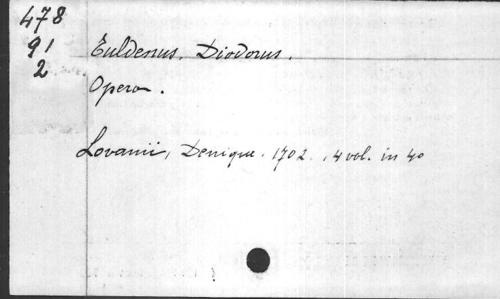 478
91
2
Euldenus, Diodorus.
Opera.
Lovanii, Denique. 1702. , 4 vol. in 4o